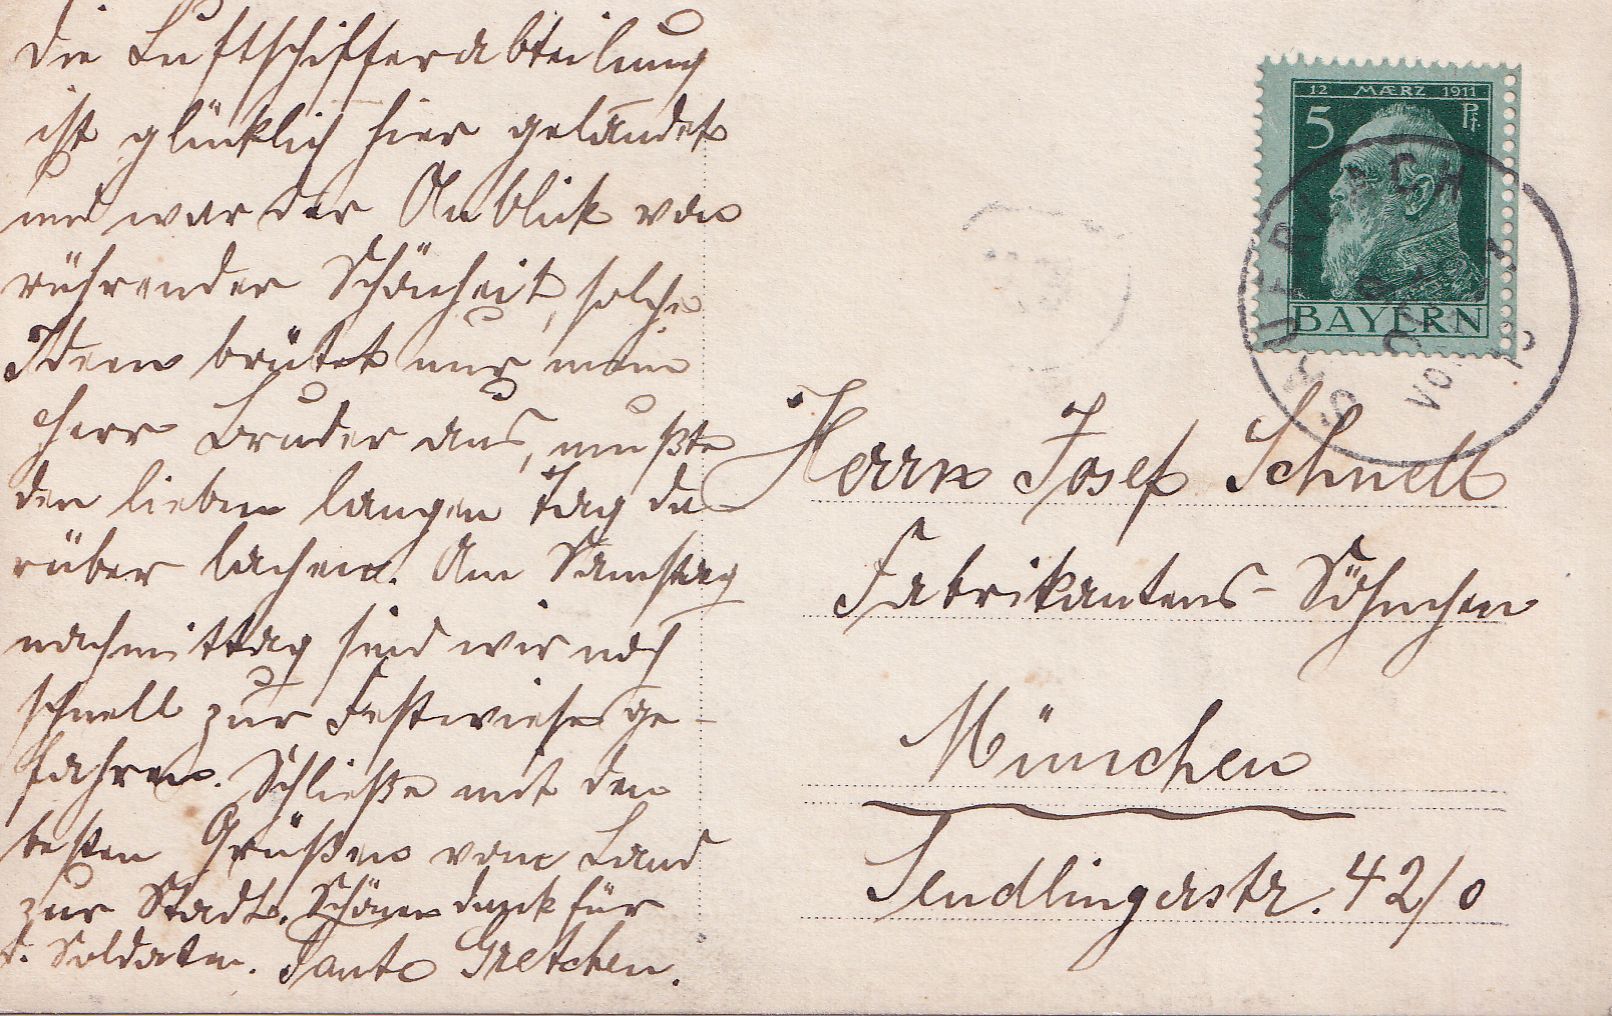 Die Luftschifferabteilung
ist glücklich hier gelandet
und war der Anblick von
rührender Schönheit, solche
Ideen brütet nur mein
Herr Bruder aus, mußte
den lieben langen Tag da
rüber lachen. Am Samstag
nachmittag sind wir noch
schnell zur Festwiese ge-
fahren. Schließe mit den
besten Grüßen vom Land
zur Stadt. Schönen dank für
d. Soldaten. Tante Gretchen.
12 MÆRZ 1911
5 Pf.
BAYERN
Herrn Josef Schnell
Fabrikantens-Söhnchen
München
Sendlingerstr. 42/0